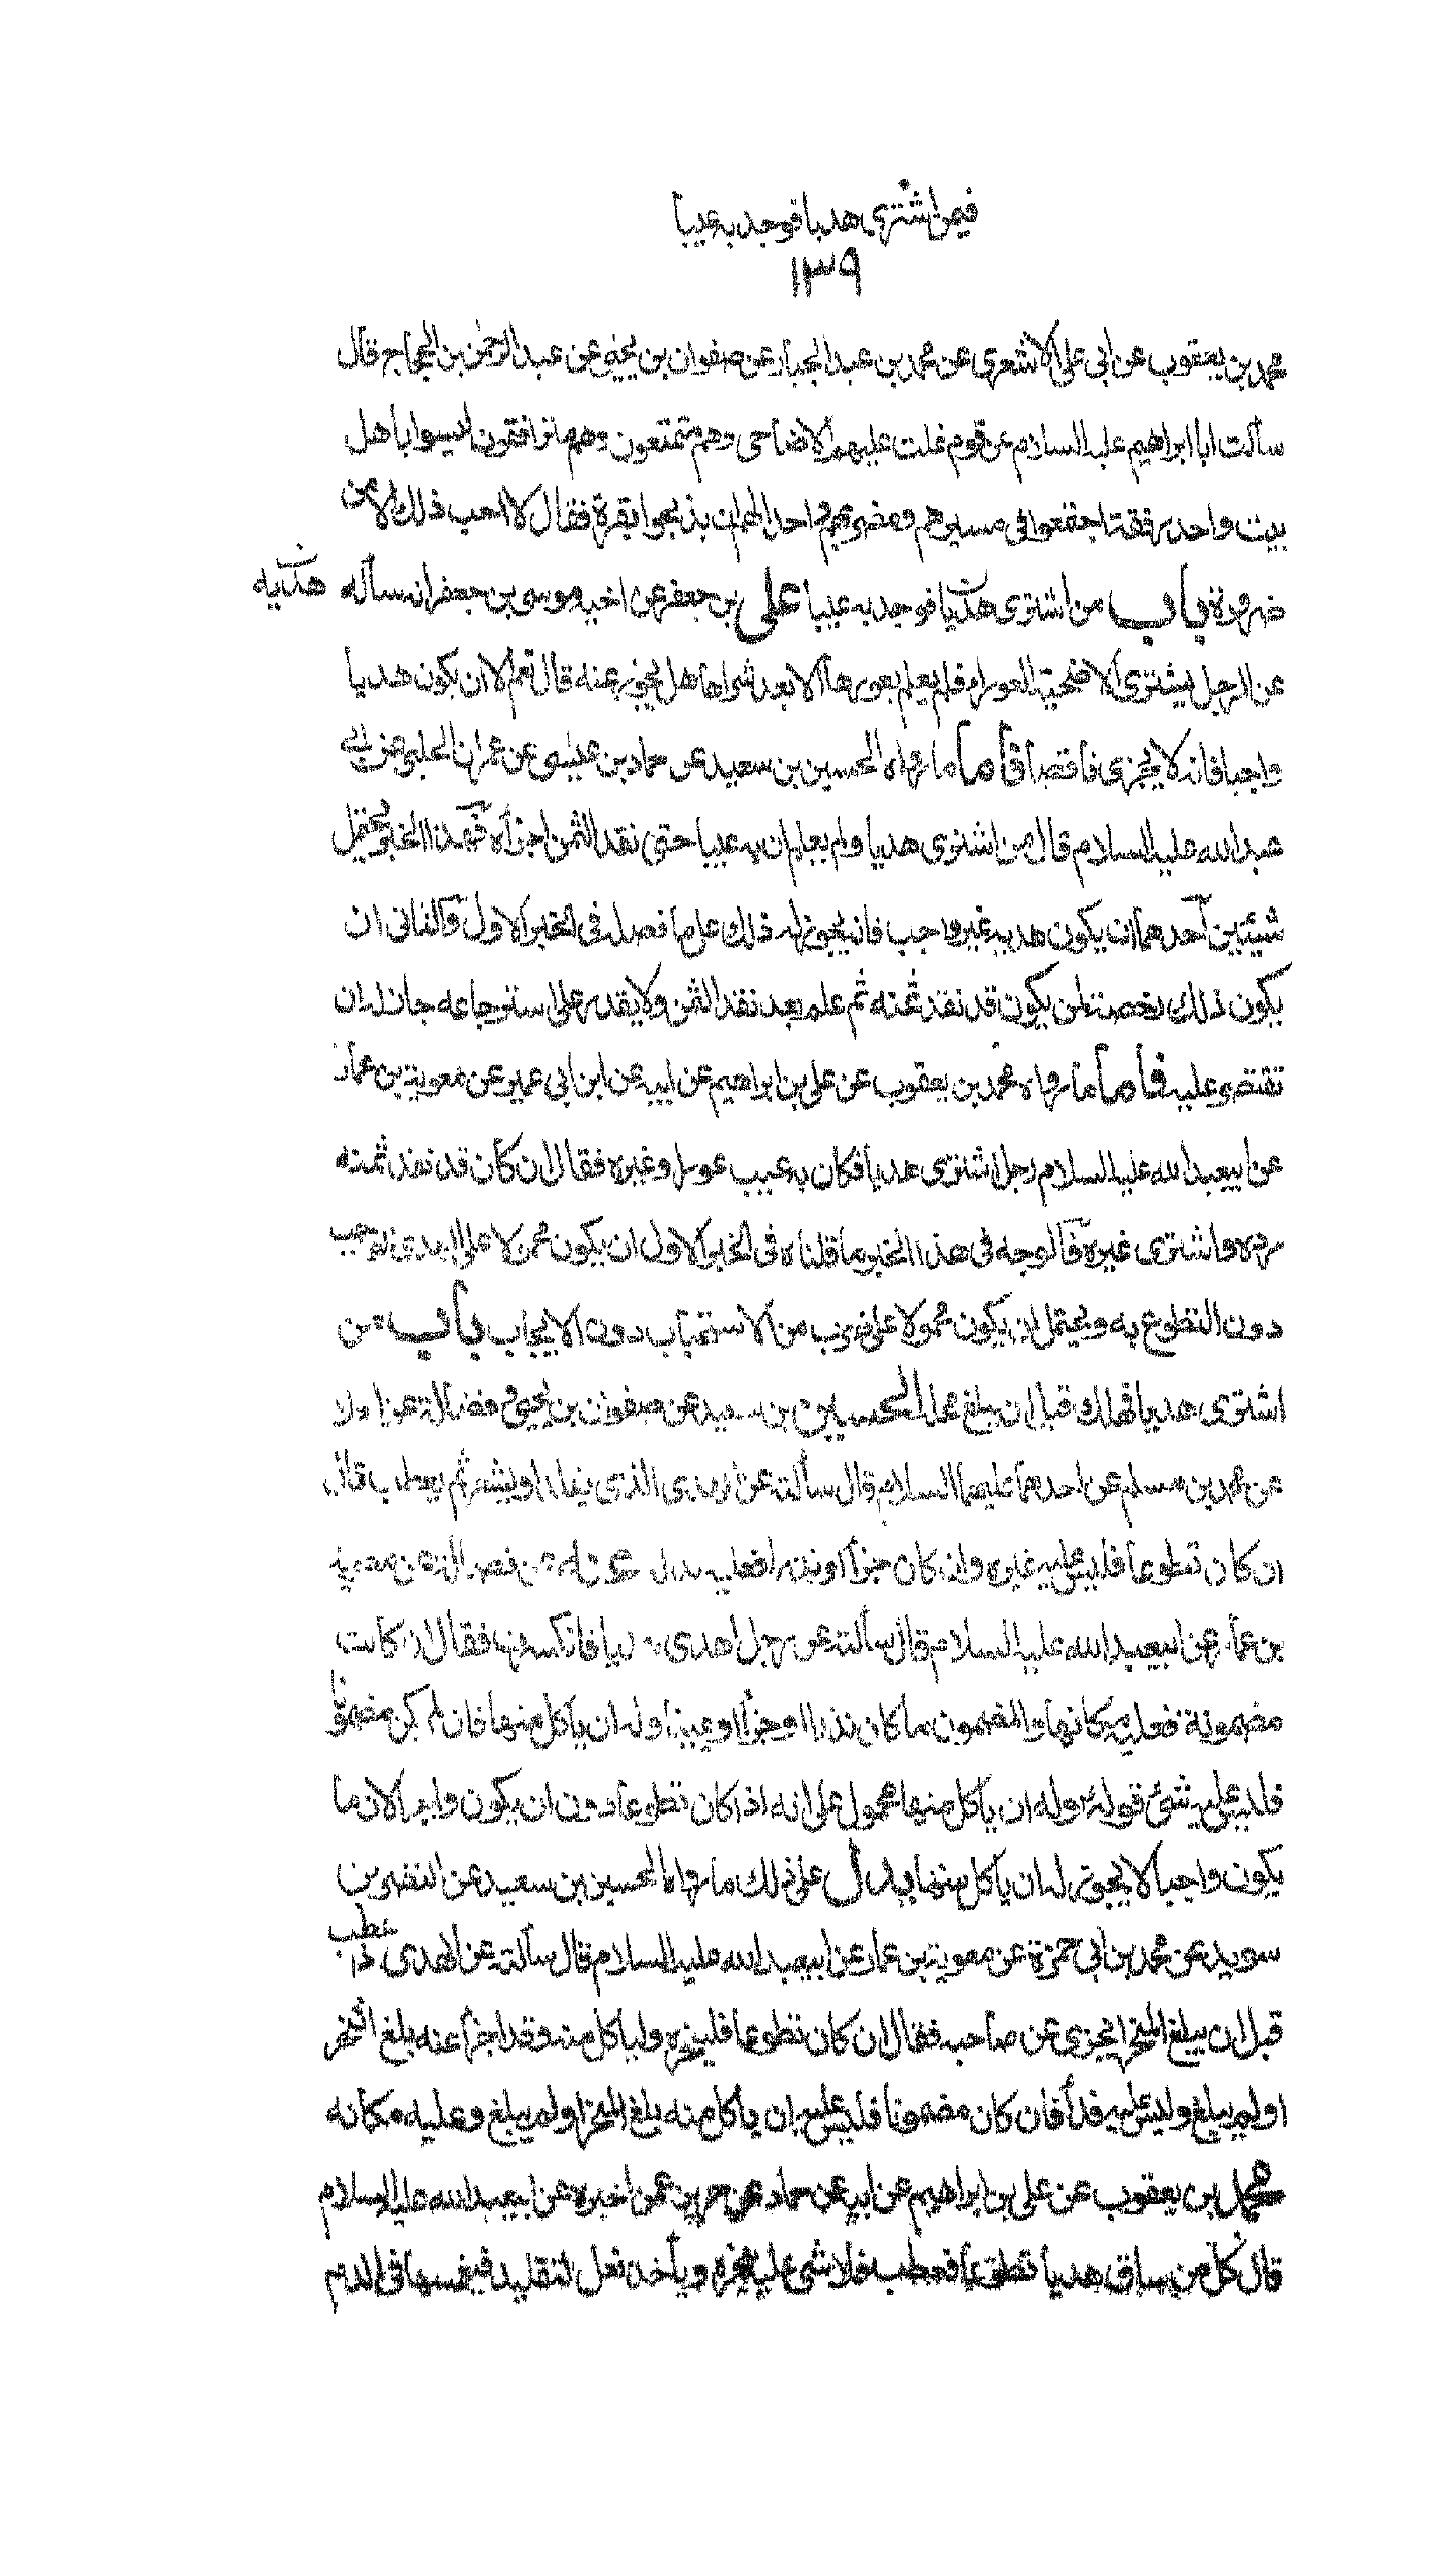 فيمن اشترى هديا فوجد به عيبا
١٣٩
محمد بن يعقوب عن ابى على الاشعرى عن محمد بن عبد الجبار عن صفوان بن يحيى عن عبد الرحمن بن الحجاج قال
سألت ابا ابراهيم عليه السلام عن قوم غلت عليهم الاضاحى وهم متمتعون وهم مترافقون ليسوا باهل
بيت واحد رفقة اجتمعوا فى مسيرهم ومضربهم واحد الهم ان يذبحوا بقرة فقال لا احب ذلك الا من
ضرورة باب من اشترى هديا فوجد به عيبا على بن جعفر عن اخيه موسى بن جعفر انه سأله هديه
عن الرجل يشترى الاضحية العوراء فلم يعلم بعورها الا بعد شراءها هل يجزى عنه قال نعم الا ان يكون هديا
واجبا فانه لا يجزى ناقصا فأما ما رواه الحسين بن سعيد عن حماد بن عيسى عن عمران الحلبى عن ابى
عبد الله عليه السلام قال من اشترى هديا ولم يعلم ان به عيبا حتى نقد الثمن اجزأه فهذا الخبر يحتمل
شيئين احدهما ان يكون هديه غير واجب فانه يجوز له ذلك على ما فصل فى الخبر الاول والثانى ان
يكون ذلك رخصة لمن يكون قد نقد ثمنه ثم علم بعد نقد الثمن ولا يقدر على استرجاعه جاز له ان
تقتصر عليه فأما ما رواه محمد بن يعقوب عن على بن ابراهيم عن ابيه عن ابن ابى عمير عن معوية بن عمار
عن ابيعبد الله عليه السلام رجل اشترى هديا فكان به عيب عور او غيره فقال ان كان قد نقد ثمنه
رده واشترى غيره فالوجه فى هذا الخبر ما قلناه فى الخبر الاول ان يكون محمولا على الهدى الواجب
دون التطوع به ويحتمل ان يكون محمولا على ضرب من الاستحباب دون الايجاب باب من
اشترى هديا فهلك قبل ان يبلغ محله الحسين بن سعيد عن صفوان بن يحيى وفضالة عن العلا
عن محمد بن مسلم عن احدهما عليهما السلام قال سألته عن الهدى الذى يقلد او يشعر ثم يعطب قال
ان كان تطوعا فليس عليه غيره وان كان جزأ او نذرا فعليه بدله عنه عن فضالة عن معوية
بن عمار عن ابيعبد الله عليه السلام قال سألته عن رجل اهدى هديا فانكسرت فقال ان كانت
مضمونة فعليه مكانها والمضمون ما كان نذرا او جزأ او يمينا وله ان يأكل منها فان لم يكن مضمونا
فليس عليه شئ قوله وله ان يأكل منها محمول على انه اذا كان تطوعا دون ان يكون واجبا لان ما
يكون واجبا لا يجوز له ان يأكل منها يدل على ذلك ما رواه الحسين بن سعيد عن النضر بن
سويد عن محمد بن ابى حمزة عن معوية بن عمار عن ابيعبد الله عليه السلام قال سألته عن الهدى اذا عطب
قبل ان يبلغ المنحر ايجزى عن صاحبه فقال ان كان تطوعا فلينحره وليأكل منه وقد اجزأ عنه بلغ المنحر
او لم يبلغ وليس عليه فدأ فان كان مضمونا فليس عليه ان يأكل منه بلغ المنحر او لم يبلغ وعليه مكانه
محمد بن يعقوب عن على بن ابراهيم عن ابيه عن حماد عن حريز عمن اخبره عن ابيعبد الله عليه السلام
قال كل من ساق هديا تطوعا فعطب فلا شئ عليه ينحره ويأخذ نعل التقليد فيغمسها فى الدم